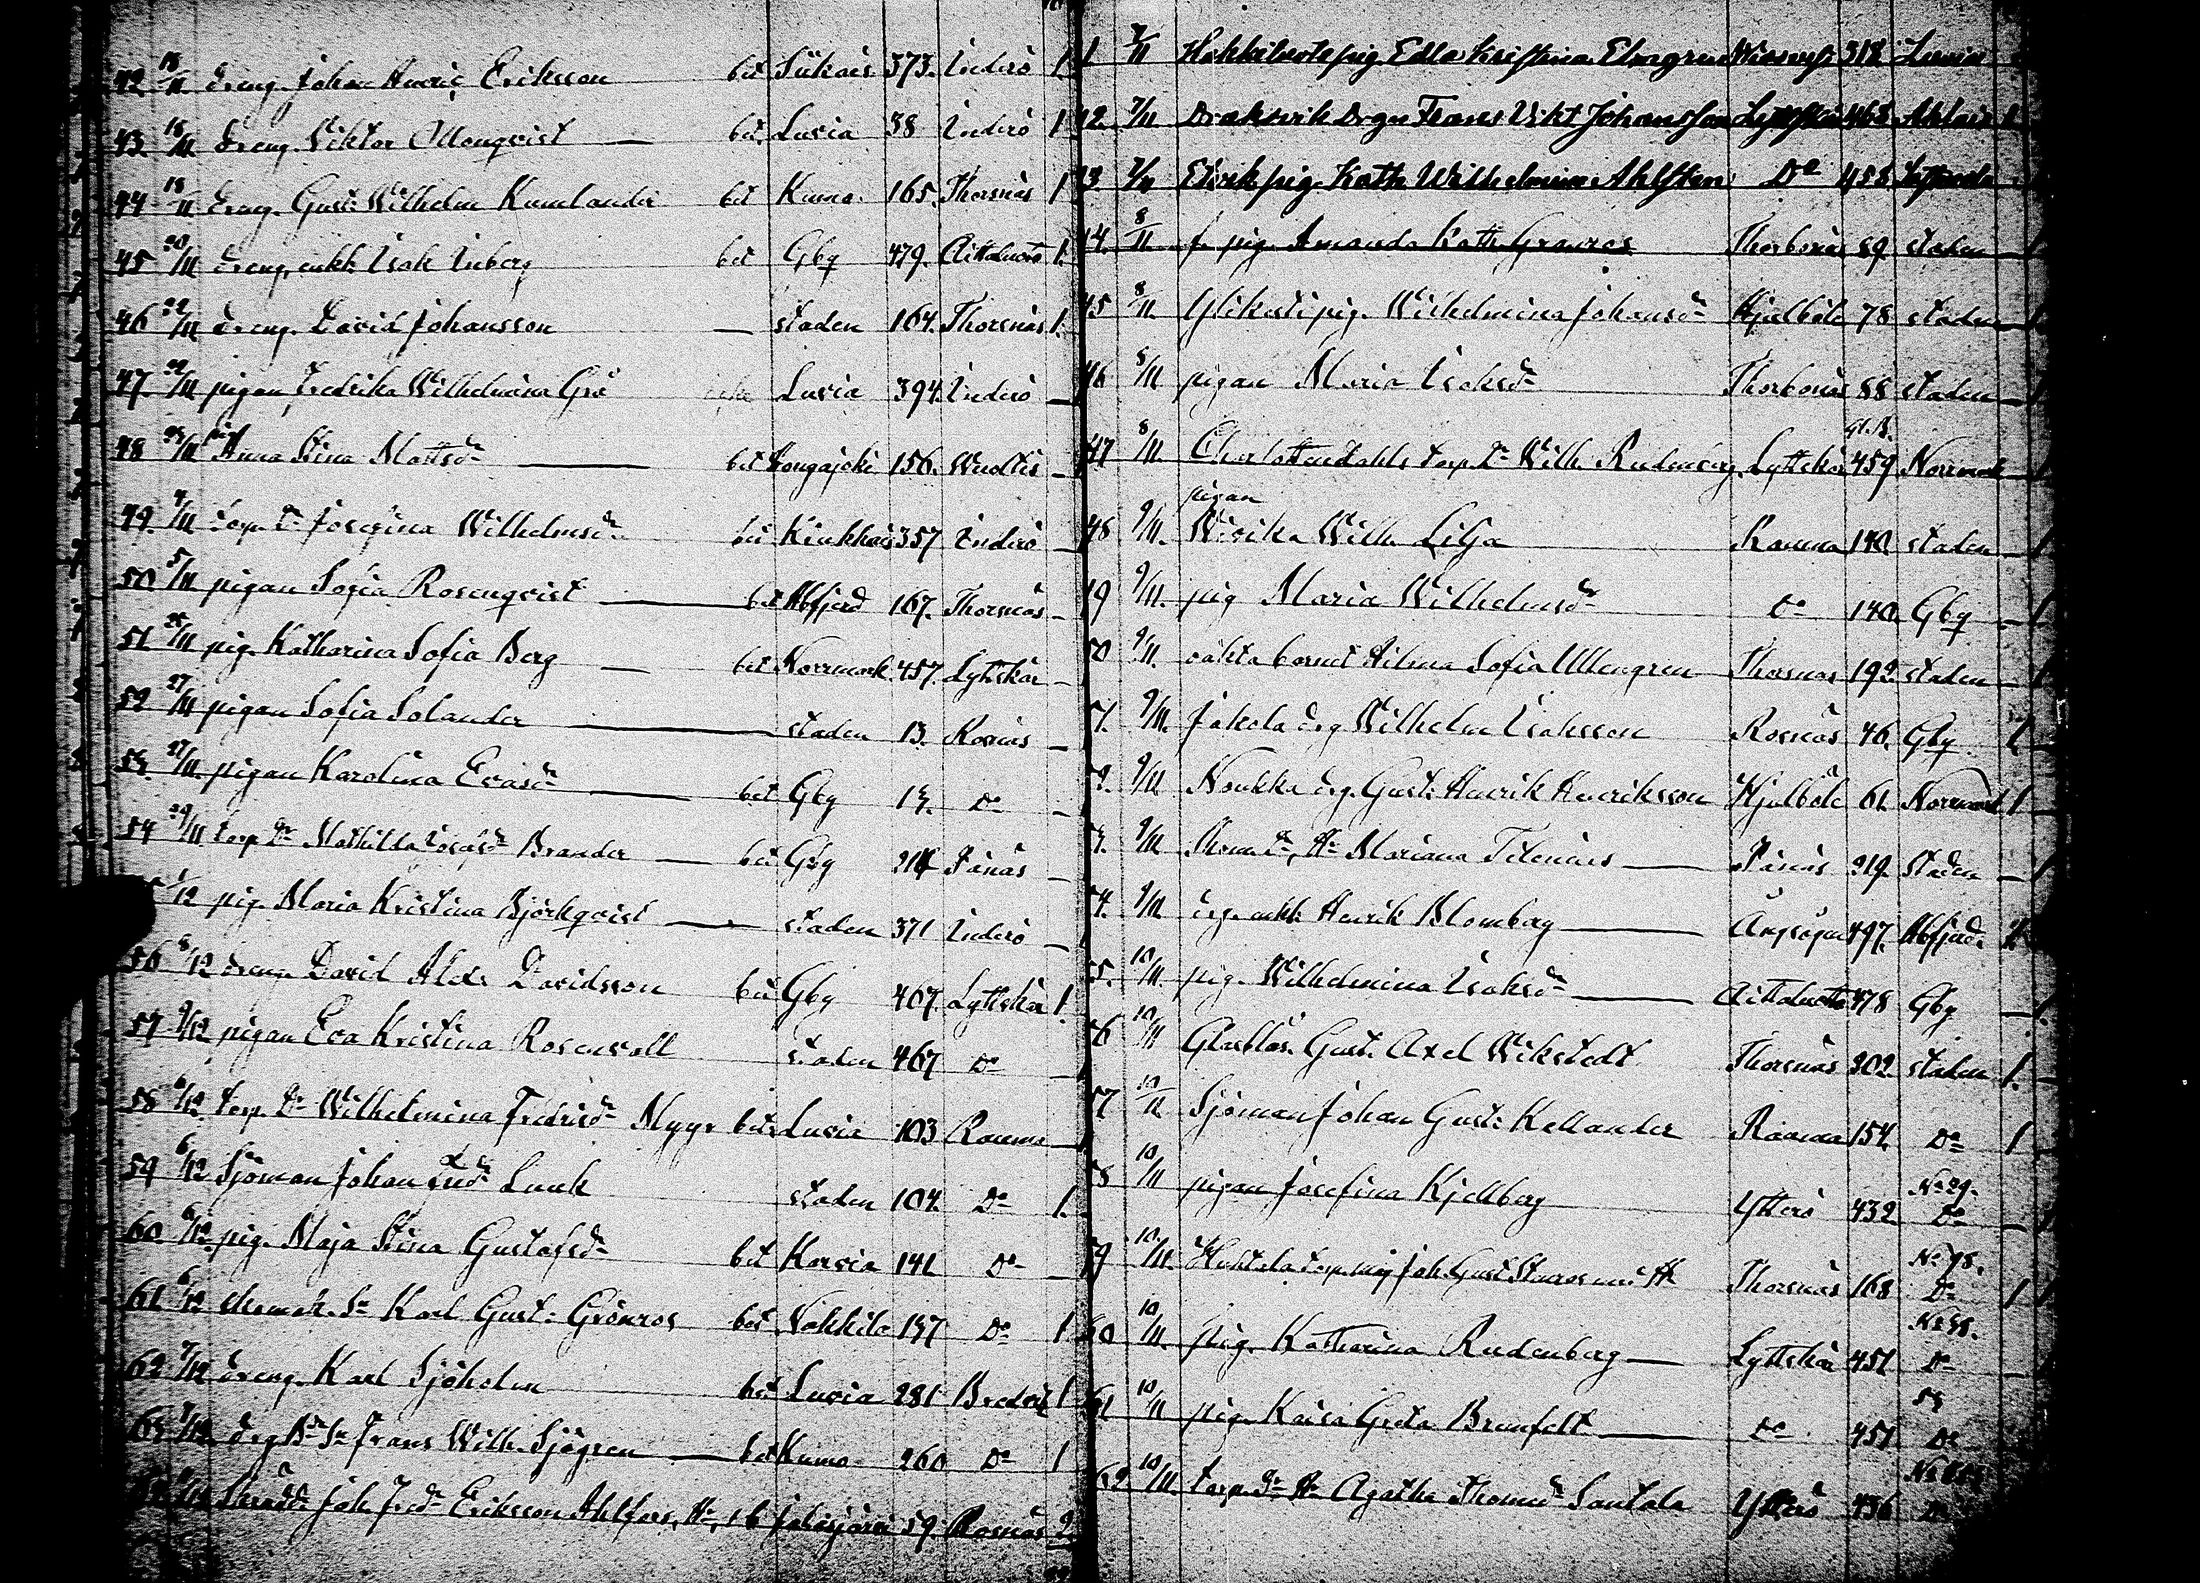 42 18/11 dreng. Johan Henric Eriksson bet Sükais 373. Inderö 1
43. 18/11 dreng. Viktor Malmqvist — bet Luvia 38 Inderö 1
44 18/11 dreng. Gust: Wilhelm Kumlander bet Kumo. 165. Thorsnäs 1
45 20/11 dreng, enkl. Isak Inberg bet Gbg 479. Aittaluoto 1.
46 22/11 dreng. David Johansson — staden 164. Thorsnäs 1.
47. 22/11 pigan Fredrika Wilhelmina Grö Luvia 394. Inderö —
48 /11 pig. Anna Stina Mattsdr — bet Hongajoki 156. —
49. 4/11 torp. dr Josefina Wilhelmsdr bet Kiukkais 357 Inderö —
50. 5/11 pigan Sofia Rosenqvist — bet Hbfjerd 167. Thorsnäs —
51 25/11 pig. Katharina Sofia Berg — bet Norrmark. 457. Lyttskär —
52 27/11 pigan Sofia Solander — staden 13. Rosnäs —
53. 27/11. pigan Karolina Evasdr — bet Gbg 13. Do —
54 29/11 torp dr Mathilda Josefsdr Brander — bet Gbg Pånäs —
1/12 pig. Maria Kristina Björkqvist — staden 371 Inderö —
56 /12 dreng. David Alex. Davidsson bet Gbg 467. Lyttskär 1.
57 9/12 pigan Eva Kristina Rosenvall staden 467 Do —
58 6/12 torp. dr Wilhelmina Fredrisdr Myyr bet. Luvia 103 Raumo —
59 6/12 Sjöman Johan Lunk staden 104. Do 1.
60 6/12 pig. Maja Stina Gustafsdr bet Korvia 141 Do —
61 6/12 Karl Gust: Grönroos bet Nakkila 147 Do 1
62 7/12 dreng. Karl Sjöholm bet Luvia 281 Bredvik 1
63 7/12 drg Frans Wilh. Sjögren — bet Kumo 260 Do 1
/12 Joh. Fredr Eriksson Ahlfors, Hu, 1 b Jalasjärvi 59. Rosnäs 2
1 7/11 pig. Edla Kristina Elmgren 318 Luvia
12. 7/11 Dräksvik Drgn Frans Vikt Johansson Lyttskär 463 Ahlais 1
13 7/11 pig. Kath Wilhelmina Ahlsten Do 458
14. 8/11 f. pig. Amanda Kath. Granroos Thorbonäs 89 staden —
45 8/11 pig. Wilhelmina Johansdr Hjulböle 78 staden —
46 8/11 pigan Maria Isaksdr Thorbonäs 88 staden —
47 8/11 Charlottendahls torp. dr Wilh. Rudenberg Lyttskär 459 Norrmark
48 9/11. pigan Wivika Wilh. Lilja Raumo 140 staden —
19 9/11. pig Maria Wilhelmsdr Do 140. Gbg —
50 9/11. vakta barnet Hilma Sofia Ullengren Thorsnäs 192. staden —
51. 9/11. Jakola drg Wilhelm Isaksson Rosnäs 46. Gbg 1
52. 9/11 Noukka drg. Gust: Henrik Henriksson Hjulböle 61. Norrmark 1
53. 9/11 Hu Mariana Titenius — Pånäs 219. Staden —
54. 9/11 drg. enkl. Henrik Blomberg — 497. Hbfjerd.
55. 10/11 pig. Wilhelmina Isaksdr — Aittaluoto 478 Gbg —
56 10/11 Glasblås. Gust. Axel Wikstedt Thorsnäs 202 staden 1.
57 10/11 Sjöman Johan Gust: Kellander Raumo 154 Do 1
58 10/11 pigan Josefina Kjellberg Ytterö 432 No 29. Do —
59 10/11. Huhtala torp. Joh. Gust. med Hu Thorsnäs 168 No 78. Do 1
60 10/11. pig. Katharina Rudenberg — Lyttskär 451 Do
61 10/11 pig. Kaisa Greta Brunfelt — Do 451 53 Do
62. 10/11. torp. dr Hu Agatha Thomasdr Santala Ytterö 436 Do